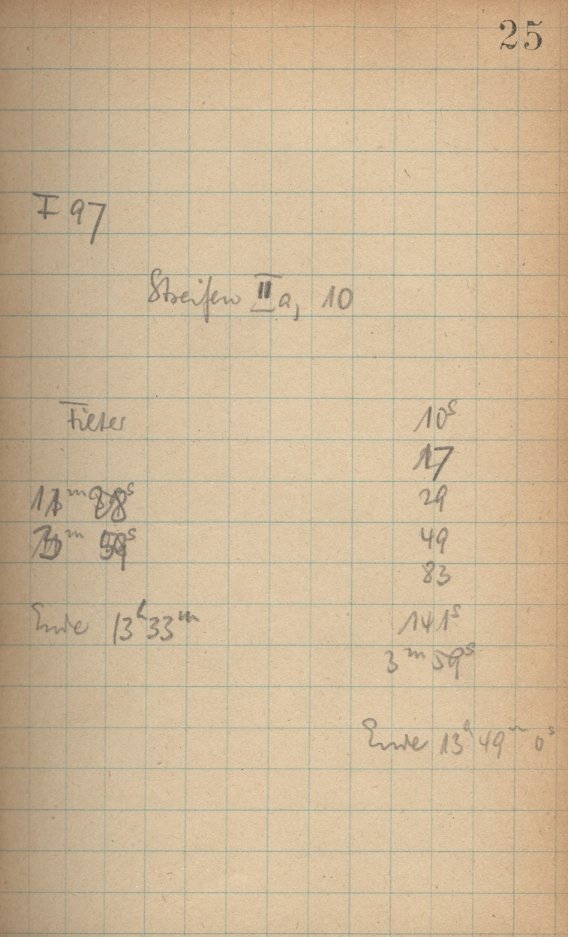 25
F 97
Streifen IIa, 10
Filter 10s
17
11m 28s 29
3m 59s 49
83
Ende 13h33m 141s
3m 59s
Ende 13h 49m 0s